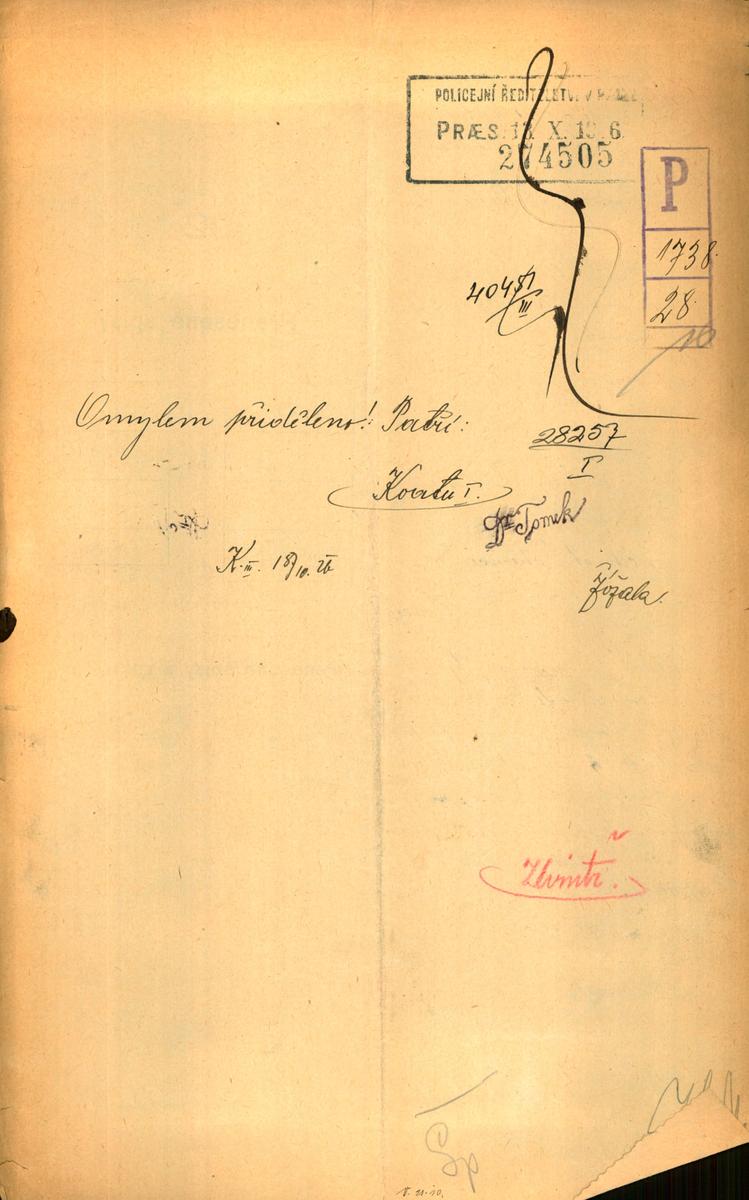 POLICEJNÍ ŘEDITELSTVÍ V PRAZE
PRÆS. 13 X. 1926
274505
P
1738
28
10
III
Omylem přiděleno! Patří:
28257
I
Kvatu I.
Dr Tomek
K. III. 18/10. 26
Uvnitř.
Šp